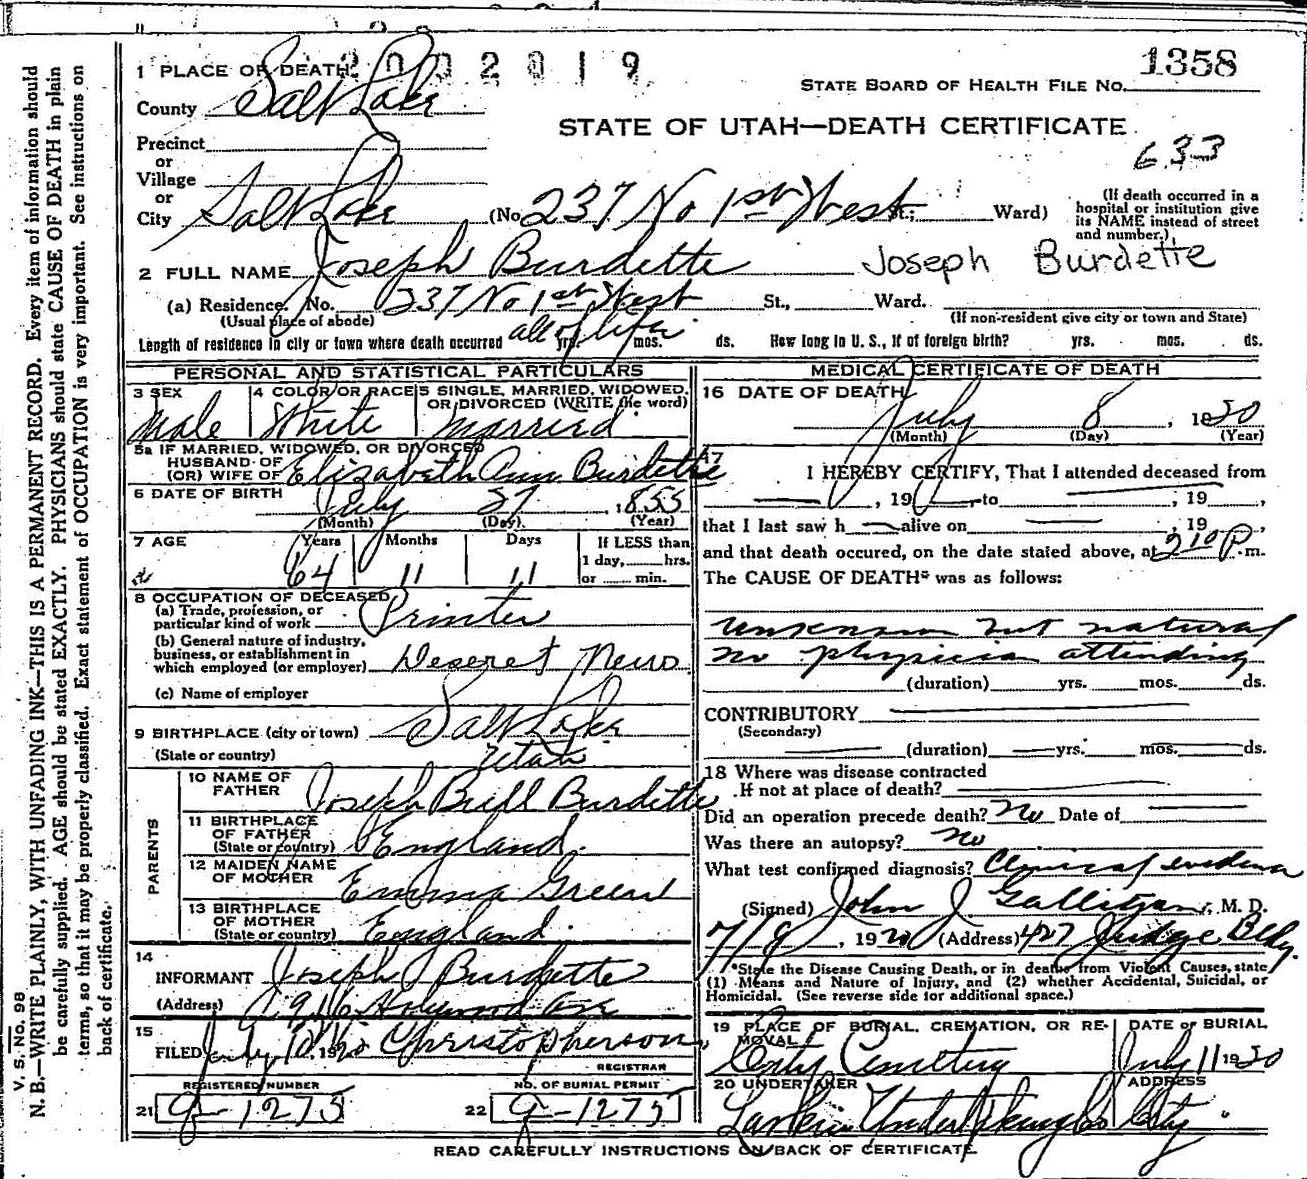 2002019
1 PLACE OF DEATH
STATE BOARD OF HEALTH FILE NO. 1358
County Salt Lake
STATE OF UTAH—DEATH CERTIFICATE
Precinct
633
or
Village
or
City Salt Lake (No. 237 No 1st West St.; Ward)
(If death occurred in a
hospital or institution give
its NAME instead of street
and number.)
2 FULL NAME Joseph Burdette Joseph Burdette
(a) Residence. No. 237 No 1st West St., Ward.
(Usual place of abode) (If non-resident give city or town and State)
Length of residence in city or town where death occurred all of life yrs. mos. ds. How long in U. S., if of foreign birth? yrs. mos. ds.
PERSONAL AND STATISTICAL PARTICULARS
3 SEX 4 COLOR OR RACE 5 SINGLE, MARRIED, WIDOWED,
OR DIVORCED (WRITE the word)
Male White Married
5a IF MARRIED, WIDOWED, OR DIVORCED
HUSBAND OF
(OR) WIFE OF Elizabeth Ann Burdette
6 DATE OF BIRTH July 27, 1855
(Month) (Day) (Year)
7 AGE Years Months Days If LESS than
1 day, hrs.
64 11 11 or min.
8 OCCUPATION OF DECEASED
(a) Trade, profession, or
particular kind of work Printer
(b) General nature of industry,
business, or establishment in
which employed (or employer) Deseret News
(c) Name of employer
9 BIRTHPLACE (city or town) Salt Lake
(State or country) Utah
PARENTS
10 NAME OF
FATHER Joseph Bull Burdette
11 BIRTHPLACE
OF FATHER
(State or country) England.
12 MAIDEN NAME
OF MOTHER Emma Green
13 BIRTHPLACE
OF MOTHER
(State or country) England.
14
INFORMANT Joseph Burdette
(Address) 1916 Ave
15
FILED July 10, 1920 Christopherson
REGISTRAR
REGISTERED NUMBER NO. OF BURIAL PERMIT
21 g-1275 22 g-1275
MEDICAL CERTIFICATE OF DEATH
16 DATE OF DEATH
July 8, 1920
(Month) (Day) (Year)
17
I HEREBY CERTIFY, That I attended deceased from
, 19 , to , 19 ,
that I last saw h alive on , 19 ,
and that death occured, on the date stated above, at 2 10 P. m.
The CAUSE OF DEATH* was as follows:
Unknown but natural
no physician attending
(duration) yrs. mos. ds.
CONTRIBUTORY
(Secondary)
(duration) yrs. mos. ds.
18 Where was disease contracted
If not at place of death?
Did an operation precede death? No Date of
Was there an autopsy? no
What test confirmed diagnosis? Clinical evidence
(Signed) John J Galligan, M. D.
7/8, 1920 (Address) 427 Judge Bldg.
*State the Disease Causing Death, or in deaths from Violent Causes, state
(1) Means and Nature of Injury, and (2) whether Accidental, Suicidal, or
Homicidal. (See reverse side for additional space.)
19 PLACE OF BURIAL, CREMATION, OR RE-
MOVAL DATE OF BURIAL
City Cemetery July 11 1920
20 UNDERTAKER ADDRESS
Larkin Undertaking Co City
READ CAREFULLY INSTRUCTIONS ON BACK OF CERTIFICATE.
V. S. No. 98
N. B.—WRITE PLAINLY, WITH UNFADING INK—THIS IS A PERMANENT RECORD. Every item of information should
be carefully supplied. AGE should be stated EXACTLY. PHYSICIANS should state CAUSE OF DEATH in plain
terms, so that it may be properly classified. Exact statement of OCCUPATION is very important. See instructions on
back of certificate.